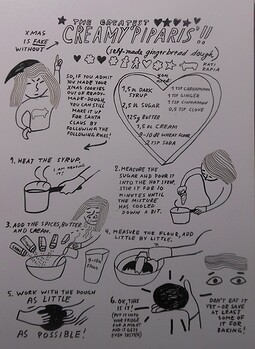 THE GREATEST
CREAMY "PIPARIS"!!
(self-made gingerbread dough)
XMAS
IS FAKE
WITHOUT
KATI
RAPIA
YOU NEED:
SO, IF YOU ADMIT
YOU MADE YOUR
XMAS COOKIES
OUT OF READY-
MADE-DOUGH,
YOU CAN STILL
MAKE IT UP
FOR SANTA
CLAUS BY
FOLLOWING THE
FOLLOWING RULES!
1,5 DL DARK
SYRUP
2,5 DL SUGAR
125g BUTTER
1 TSP CARDAMOMO
1 TSP GINGER
1 TSP CINNAMON
0,5 TSP CLOVE
1,5 DL CREAM
8-10 DL WHEAT FLOUR
2 TSP SODA
1. HEAT THE SYRUP.
I AM HEATING
IT!
2. MEASURE THE
SUGAR AND POUR IT
INTO THE HOT SYRUP.
STIR IT FOR 10
MINUTES UNTIL
THE MIXTURE
HAS COOLED
DOWN A BIT.
3. ADD THE SPICES, BUTTER
AND CREAM.
4. MEASURE THE FLOUR, ADD
LITTLE BY LITTLE.
5. WORK WITH THE DOUGH
AS LITTLE
AS POSSIBLE!
6. OK, THIS
IS IT!
(PUT IT INTO
YOUR FRIDGE
FOR A NIGHT
AND IT GETS
EVEN TASTIER)
DON'T EAT IT
YET - OR SAVE
AT LEAST
SOME OF
IT FOR
BAKING!